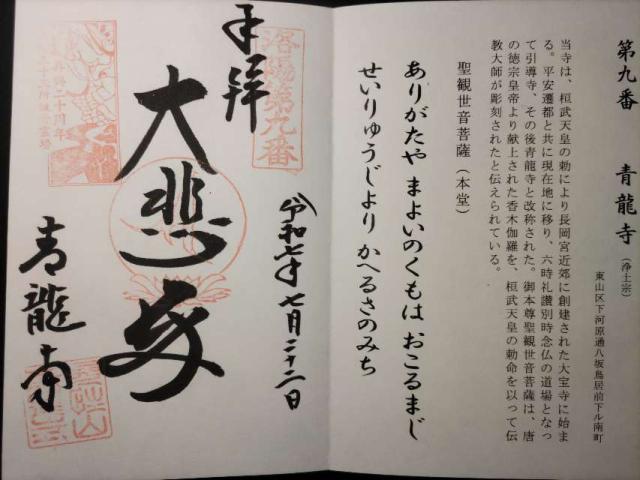 第九番 青龍寺（浄土宗）
東山区下河原通八坂鳥居前下ル南町
当寺は、桓武天皇の勅により長岡宮近郊に創建された大宝寺に始ま
る。平安遷都と共に現在地に移り、六時礼讃別時念仏の道場となっ
て引導寺、その後青龍寺と改称された。御本尊聖観世音菩薩は、唐
の徳宗皇帝より献上された香木伽羅を、桓武天皇の勅命を以って伝
教大師が彫刻されたと伝えられている。
聖観世音菩薩（本堂）
ありがたや まよいのくもは おこるまじ
せいりゅうじより かへるさのみち
洛陽第九番
奉拝
令和七年七月二十二日
大悲殿
青龍寺